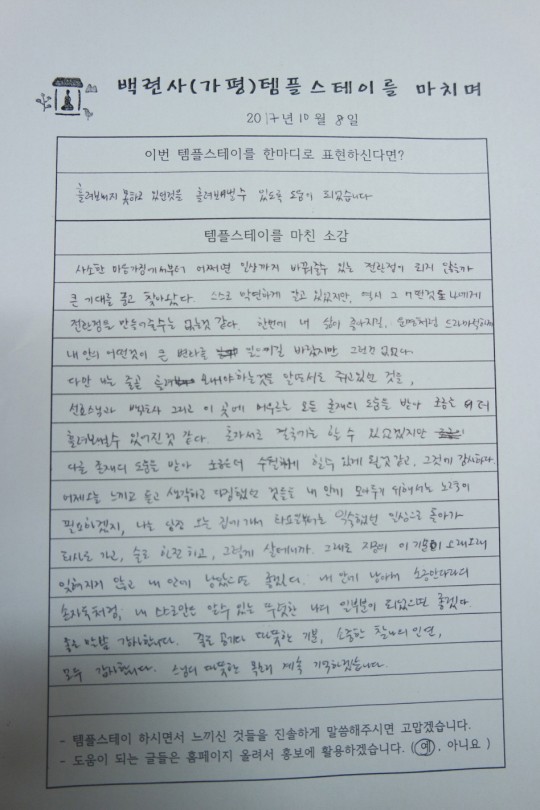 백련사(가평)템플스테이를 마치며
2017년 10월 8일
이번 템플스테이를 한마디로 표현하신다면?
흘려보내지 못하고 있던것을 흘려보낼수 있도록 도움이 되었습니다
템플스테이를 마친 소감
사소한 마음가짐에서부터 어쩌면 일상까지 바꿔줄수 있는 전환점이 되지 않을까
큰 기대를 품고 찾아왔다. 스스로 막연하게 알고 있었지만, 역시 그 어떤것도 나에게
전환점을 만들어줄수는 없는것 같다. 한번에 내 삶이 좋아지길, 드라마처럼
내 안의 어떤것이 큰 변화를 일으키길 바랐지만 그런건 없었다.
다만 나는 줄곧 흘려보내야하는것을 알면서도 쥐고있던 것을,
선효스님과 백련사 그리고 이 곳에 머무르는 모든 존재의 도움을 받아 조금은 더
흘려보낼수 있어진것 같다. 혼자서도 결국가는 할 수 있었겠지만
다른 존재의 도움을 받아 조금은더 수월하게 할수 있게 된것 같고, 그것에 감사하다.
어제오늘 느끼고 듣고 생각하고 다짐했던 것들을 내 안에 모아두기 위해서는 노력이
필요하겠지, 나는 당장 오늘 집에 가서 내일부터는 익숙했던 일상으로 돌아가
회사도 가고, 술도 한잔 하고, 그렇게 살테니까. 그래도 지금의 이 기분이 오래오래
잊혀지지 않고 내 안에 남았으면 좋겠다. 내 안에 남아서 조금만이라도
손자욱처럼, 내 스스로만은 알수 있는 뚜렷한 나의 일부분이 되었으면 좋겠다.
좋은 말씀 감사합니다. 좋은 공기와 따뜻한 기분, 소중한 찰나의 인연,
모두 감사합니다. 스님의 따뜻한 목소리 계속 기억하겠습니다.
- 템플스테이 하시면서 느끼신 것들을 진솔하게 말씀해주시면 고맙겠습니다.
- 도움이 되는 글들은 홈페이지 올려서 홍보에 활용하겠습니다. (예, 아니요 )